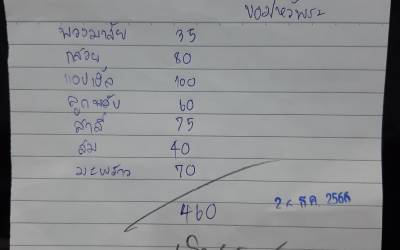 ของไหว้พระ
พวงมาลัย 35
กล้วย 80
แอปเปิ้ล 100
ลูกพลับ 60
สาลี่ 75
ส้ม 40
มะพร้าว 70
460
ธ.ค. 2566